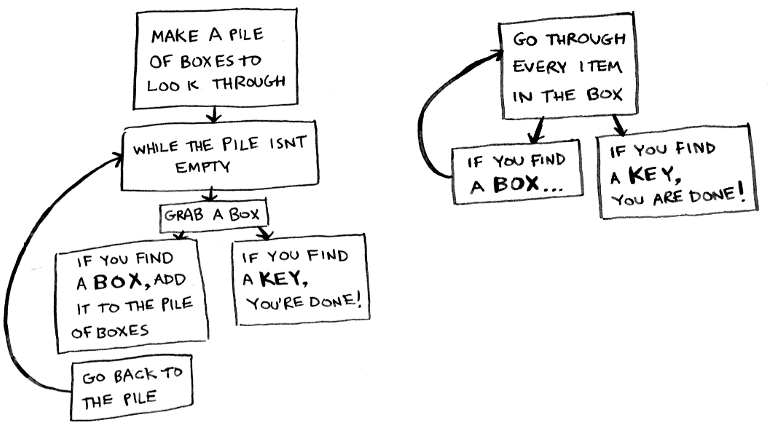 MAKE A PILE
OF BOXES TO
LOOK THROUGH
WHILE THE PILE ISNT
EMPTY
GRAB A BOX
IF YOU FIND
A BOX, ADD
IT TO THE PILE
OF BOXES
IF YOU FIND
A KEY,
YOU'RE DONE!
GO BACK TO
THE PILE
GO THROUGH
EVERY ITEM
IN THE BOX
IF YOU FIND
A BOX...
IF YOU FIND
A KEY,
YOU ARE DONE!